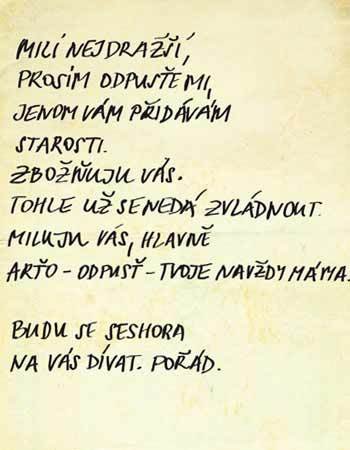 MILÍ NEJDRAŽŠÍ,
PROSÍM ODPUSŤE MI,
JENOM VÁM PŘIDÁVÁM
STAROSTI.
ZBOŽŇUJU VÁS.
TOHLE UŽ SE NEDÁ ZVLÁDNOUT.
MILUJU VÁS, HLAVNĚ
ARŤO - ODPUSŤ - TVOJE NAVŽDY MÁMA.
BUDU SE SESHORA
NA VÁS DÍVAT. POŘÁD.